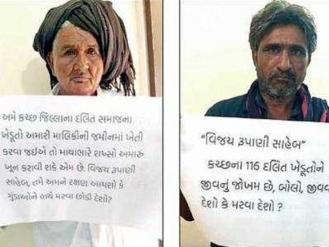 અમે કચ્છ જિલ્લાના દલિત સમાજના
ખેડૂતો અમારી માલિકીની જમીનમાં ખેતી
કરવા જઈએ તો માથાભારે શખ્સો અમારું
ખૂન કરાવી શકે એમ છે. વિજય રૂપાણી
સાહેબ, તમે અમને રક્ષણ આપશો કે
ગુંડાઓને હાથે મરવા છોડી દેશો?
“વિજય રૂપાણી સાહેબ”
કચ્છના 116 દલિત ખેડૂતોને
જીવનું જોખમ છે, બોલો, જીવવા
દેશો કે મરવા દેશો ?